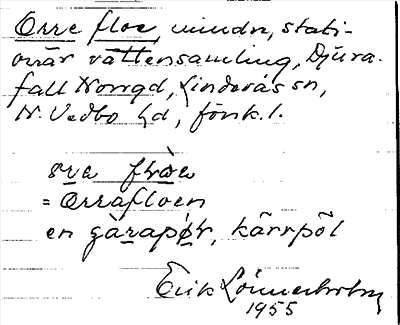 Orre floe, mindr, stati-
onär vattensamling, Djura-
fall Norrgd, Linderås sn,
N. Vedbo hd, förik. l.
ɷva fròɷa
= Orrafloen
en gàrapør, kärrpöl
Erik
1955